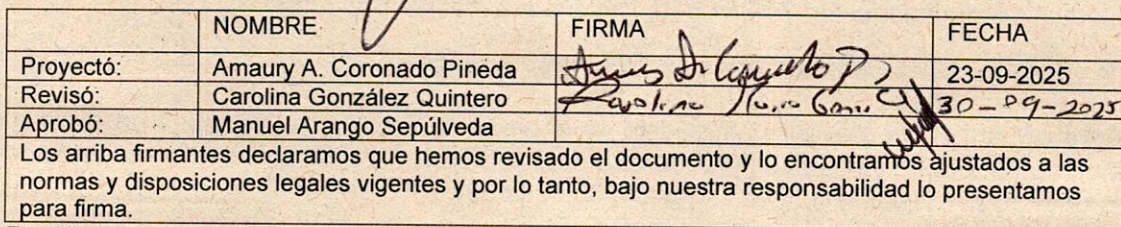 NOMBRE FIRMA FECHA
Proyectó: Amaury A. Coronado Pineda Amaury A. Coronado P. 23-09-2025
Revisó: Carolina González Quintero 30-09-2025
Aprobó: Manuel Arango Sepúlveda
Los arriba firmantes declaramos que hemos revisado el documento y lo encontramos ajustados a las
normas y disposiciones legales vigentes y por lo tanto, bajo nuestra responsabilidad lo presentamos
para firma.